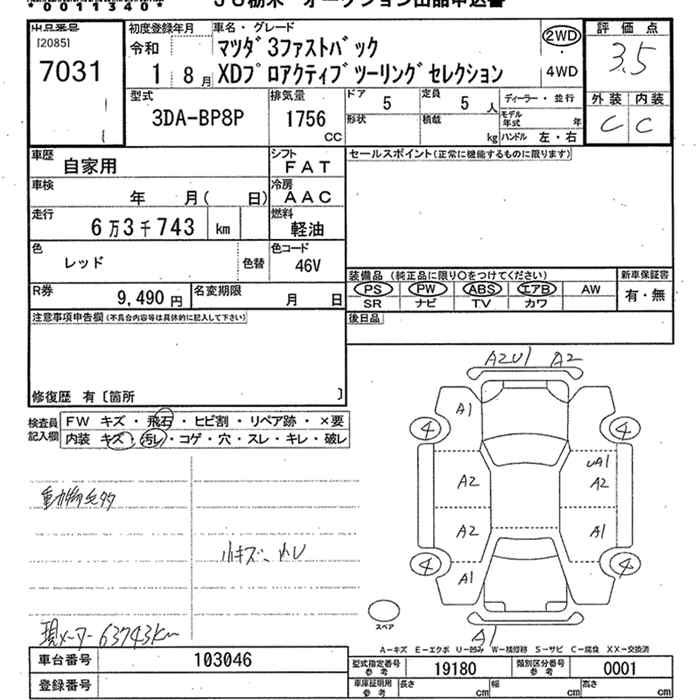 *0011340*
JU栃木 オークション出品申込書
出品番号
[2085]
7031
初度登録年月
令和
1 8月
車名・グレード
マツダ3ファストバック
XDプロアクティブツーリングセレクション
2WD
・
4WD
評価点
3.5
外装 内装
C C
型式
3DA-BP8P
排気量
1756
CC
ドア 5
定員 5 人
ディーラー・並行
形状
積載 kg
モデル年式 年
ハンドル 左・右
車歴
自家用
シフト
FAT
セールスポイント(正常に機能するものに限ります)
車検
年 月( 日)
冷房
AAC
走行
6万3千743 km
燃料
軽油
色
レッド
色替
色コード
46V
装備品 (純正品に限り○をつけてください)
新車保証書
PS PW ABS エアB AW
有・無
SR ナビ TV カワ
R券
9,490円
名変期限
月 日
後日品
注意事項申告欄(不具合内容等は具体的に記入して下さい)
修復歴 有〔箇所 〕
検査員記入欄
FW キズ・飛石・ヒビ割・リペア跡・×要
内装 キズ・汚レ・コゲ・穴・スレ・キレ・破レ
動物毛多
小キズ、汚レ
現メーター63743km
A2U1 A2
A1
4 4
UA1
A2 A2
A2 A1
4 4
A1
A1
スペア
A-キズ E-エクボ U-凹み W-補修跡 S-サビ C-腐食 XX-交換済
車台番号
103046
登録番号
型式指定番号
参考
19180
類別区分番号
参考
0001
車庫証明用
参考
長さ cm
幅 cm
高さ cm